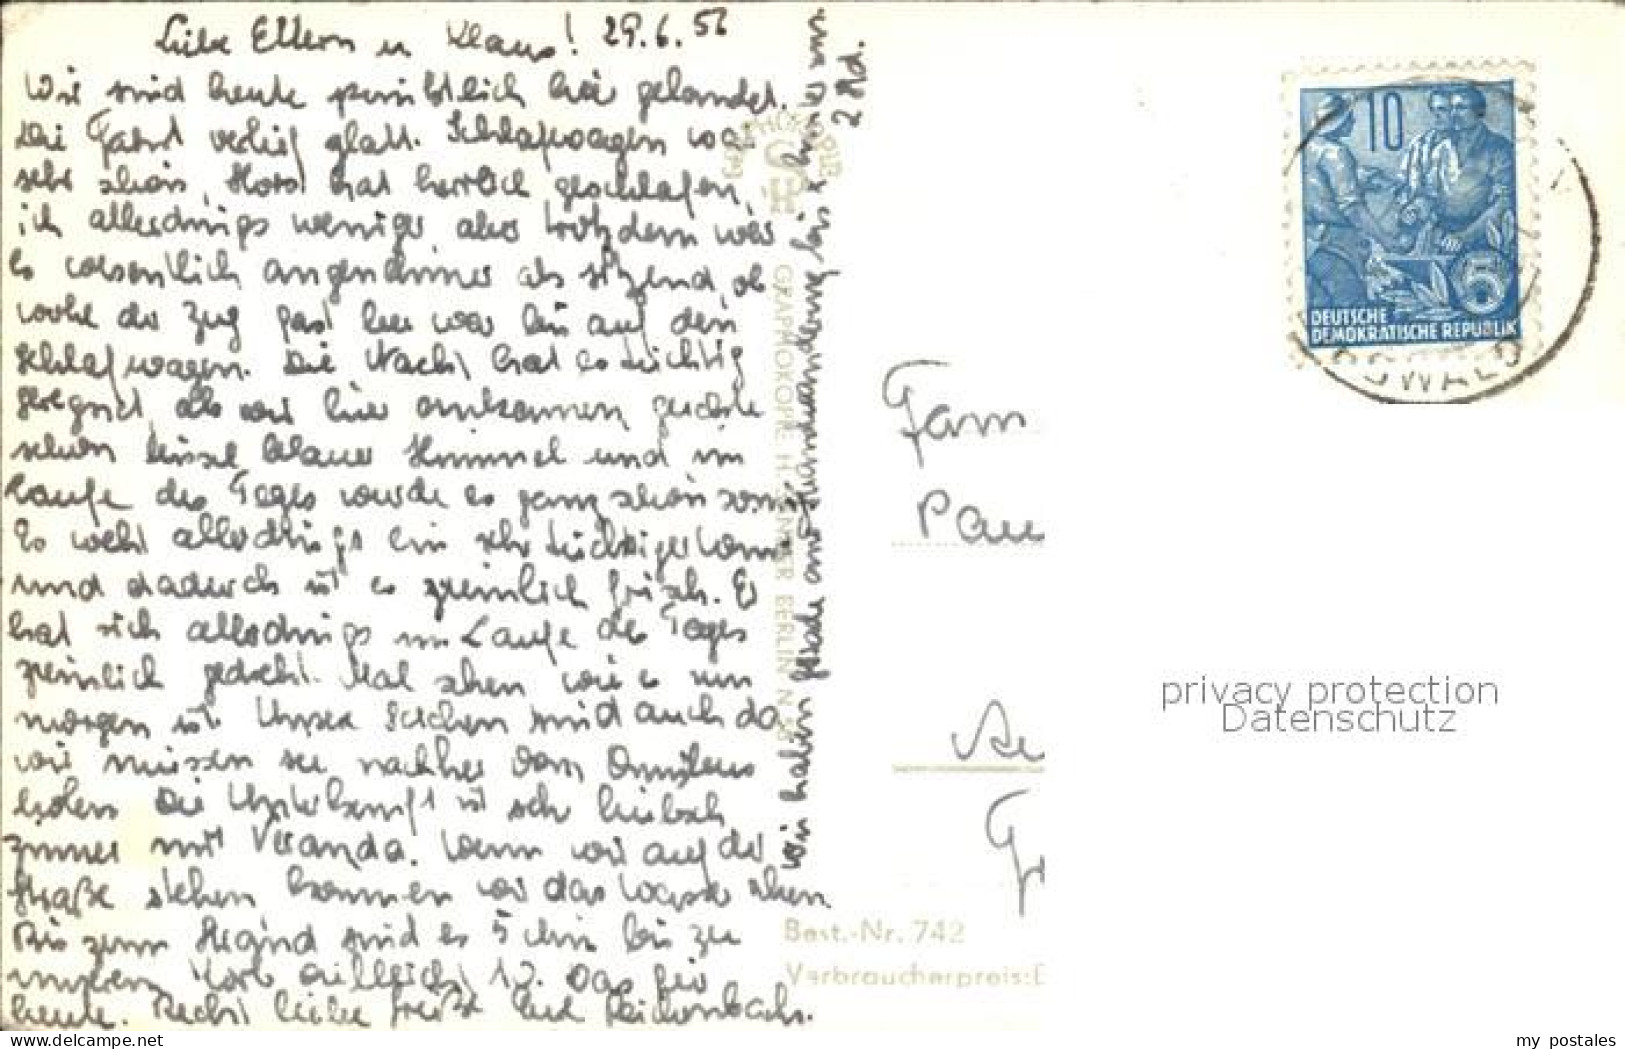 Liebe Eltern u Klaus! 29.6.56
Wir sind heute pünktlich hier gelandet.
Die Fahrt verlief glatt. Schlafwagen war
sehr schön, Horst hat herrlich geschlafen,
ich allerdings weniger, aber trotzdem war
es wesentlich angenehmer als sitzend, ob
wohl der Zug fast leer war bis auf den
Schlafwagen. Die Nacht hat es tüchtig
geregnet, als wir hier ankamen, guckte
schon bissel blauer Himmel und im
Laufe des Tages wurde es ganz schön
Es weht allerdings ein sehr tüchtiger
und dadurch ist es ziemlich frisch. Es
hat sich allerdings im Laufe des Tages
ziemlich gedreht. Mal sehen wie es nun
morgen ist. Unsere Sachen sind auch da
wir müssen sie nachher vom Omnibus
holen. Die Unterkunft ist sehr hübsch
Zimmer mit Veranda. Wenn wir auf der
Straße stehen können wir das Wasser sehen.
Bis zum Strand sind es 5 Min bis zu
unserem Korb vielleicht 10. Das für
heute. Recht liebe Grüße Eure Reichenbachs.
Wir haben gerade eine Strandwanderung bis x hinter uns
2 Std.
GRAPHOKOPIE H. BERLIN N
Best.-Nr. 742
Verbraucherpreis:
10
5
DEUTSCHE
DEMOKRATISCHE REPUBLIK
Fam
Pau
privacy protection
Datenschutz
www.mypostcard.eu
my postales